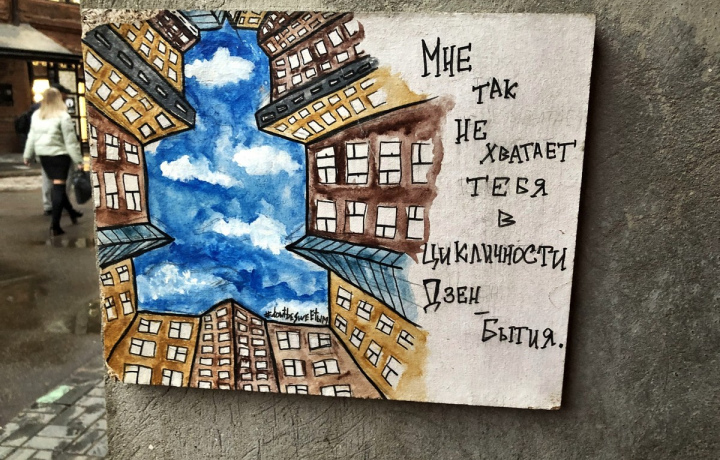 Мне
так
не
хватает
тебя
в
цикличности
Дзен_
Бытия.